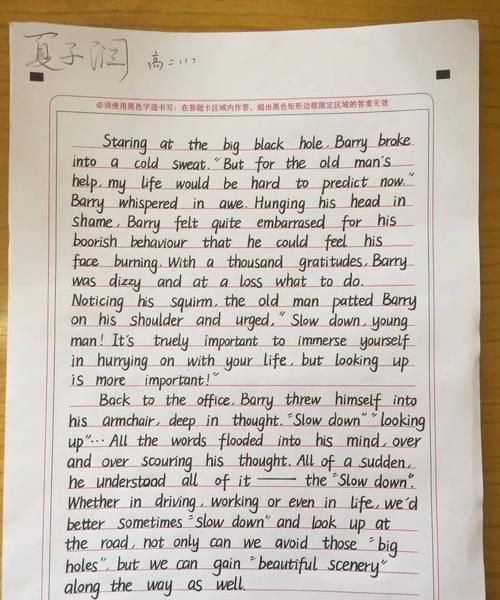 夏子涵 高二(1)
必须使用黑色字迹书写：在答题卡区域内作答，超出黑色矩形边框限定区域的答案无效
Staring at the big black hole, Barry broke
into a cold sweat. "But for the old man's
help, my life would be hard to predict now."
Barry whispered in awe. Hunging his head in
shame, Barry felt quite embarrased for his
boorish behaviour that he could feel his
face burning. With a thousand gratitudes, Barry
was dizzy and at a loss what to do.
Noticing his squirm, the old man patted Barry
on his shoulder and urged, "Slow down, young
man! It's truely important to immerse yourself
in hurrying on with your life, but looking up
is more important!"
Back to the office, Barry threw himself into
his armchair, deep in thought. "Slow down" "looking
up"... All the words flooded into his mind, over
and over scouring his thought. All of a sudden,
he understood all of it —— the "Slow down".
Whether in driving, working or even in life, we'd
better sometimes "slow down" and look up at
the road, not only can we avoid those "big
holes", but we can gain "beautiful scenery"
along the way as well.